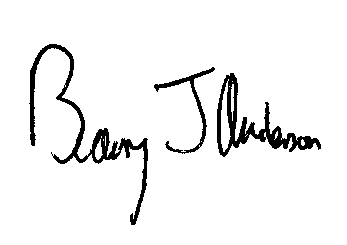 Barry J Anderson